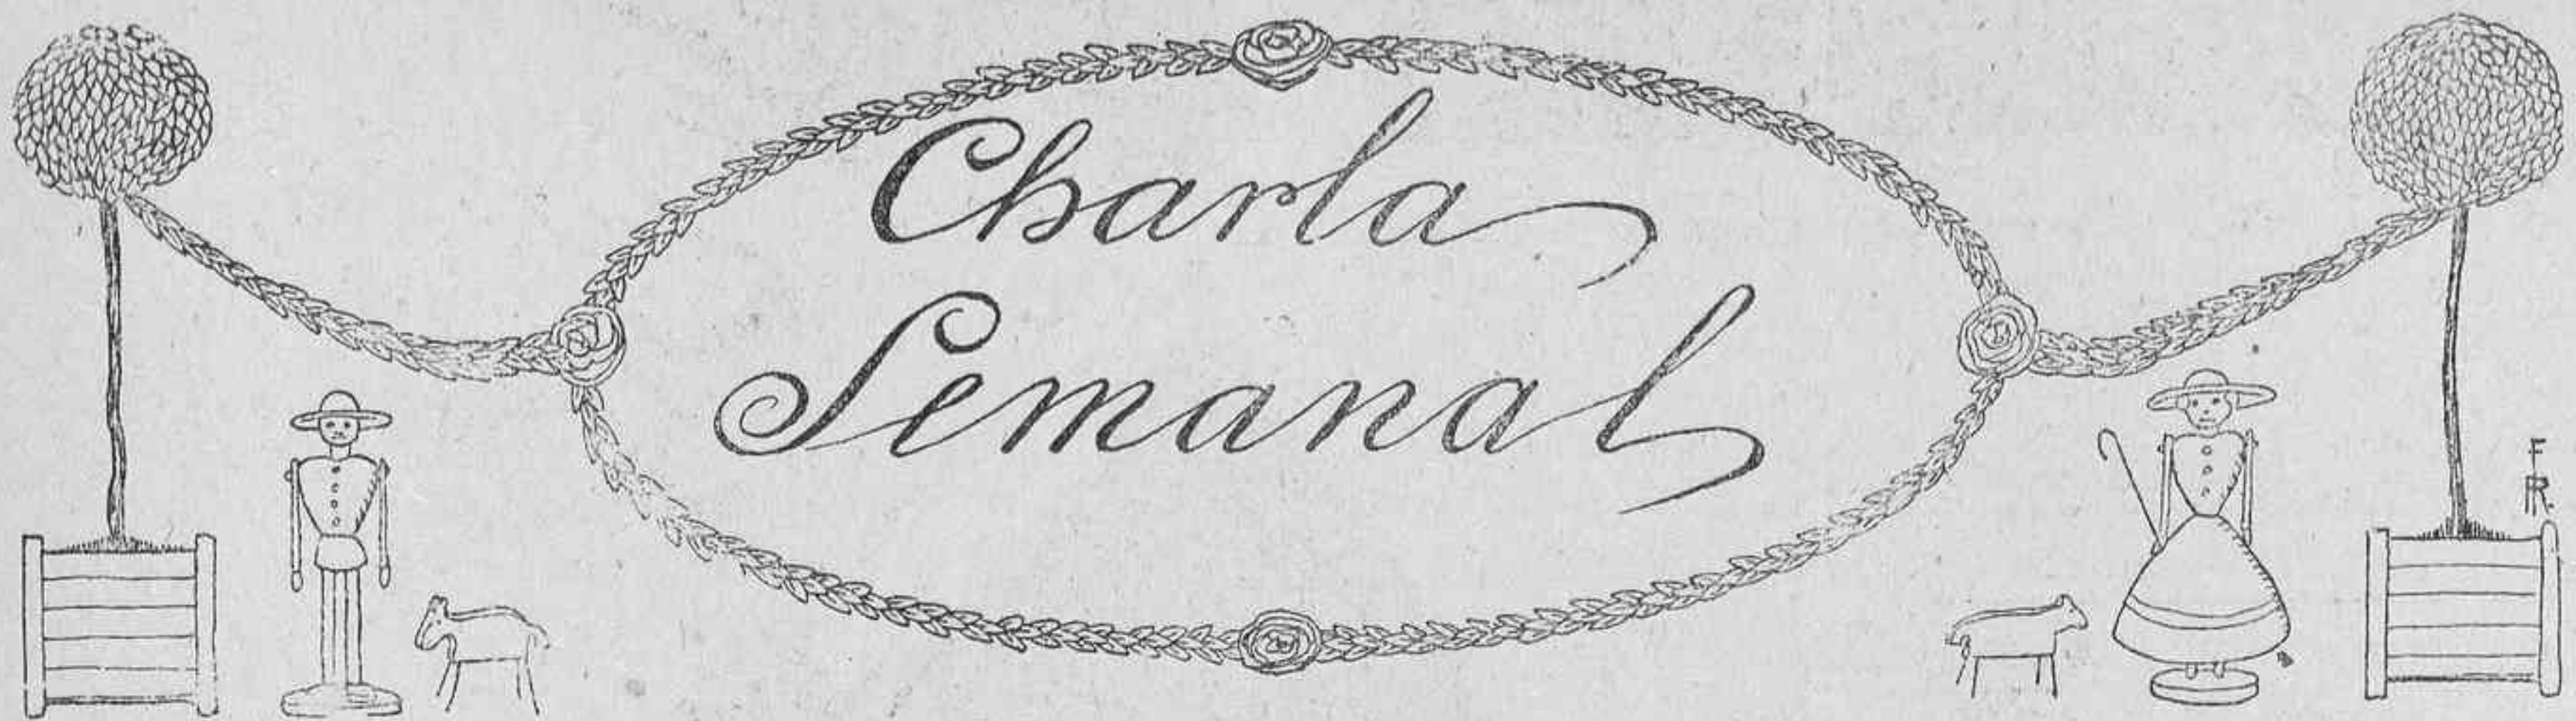 Charla
Semanal
FR.